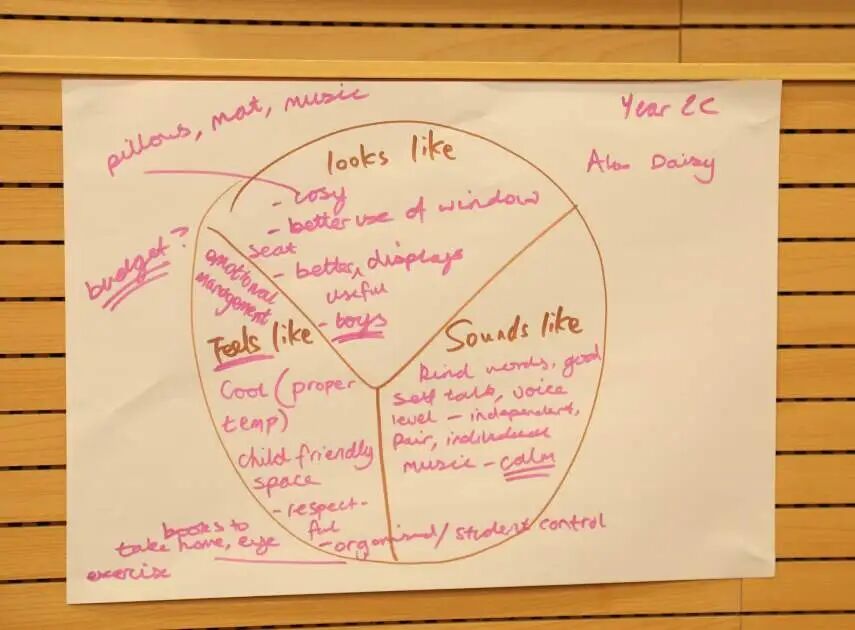 pillows, mat, music
Year 2C
Daisy
looks like
- cosy
- better use of window
seat
- better, displays
useful
- boys
budget?
emotional
management
Feels like
Cool (proper
temp)
child friendly
space
- respect-
ful
- organised/student control
books to
take home, eye
exercise
Sounds like
kind words, good
self talk, voice
level - independent,
pair, individual
music - calm